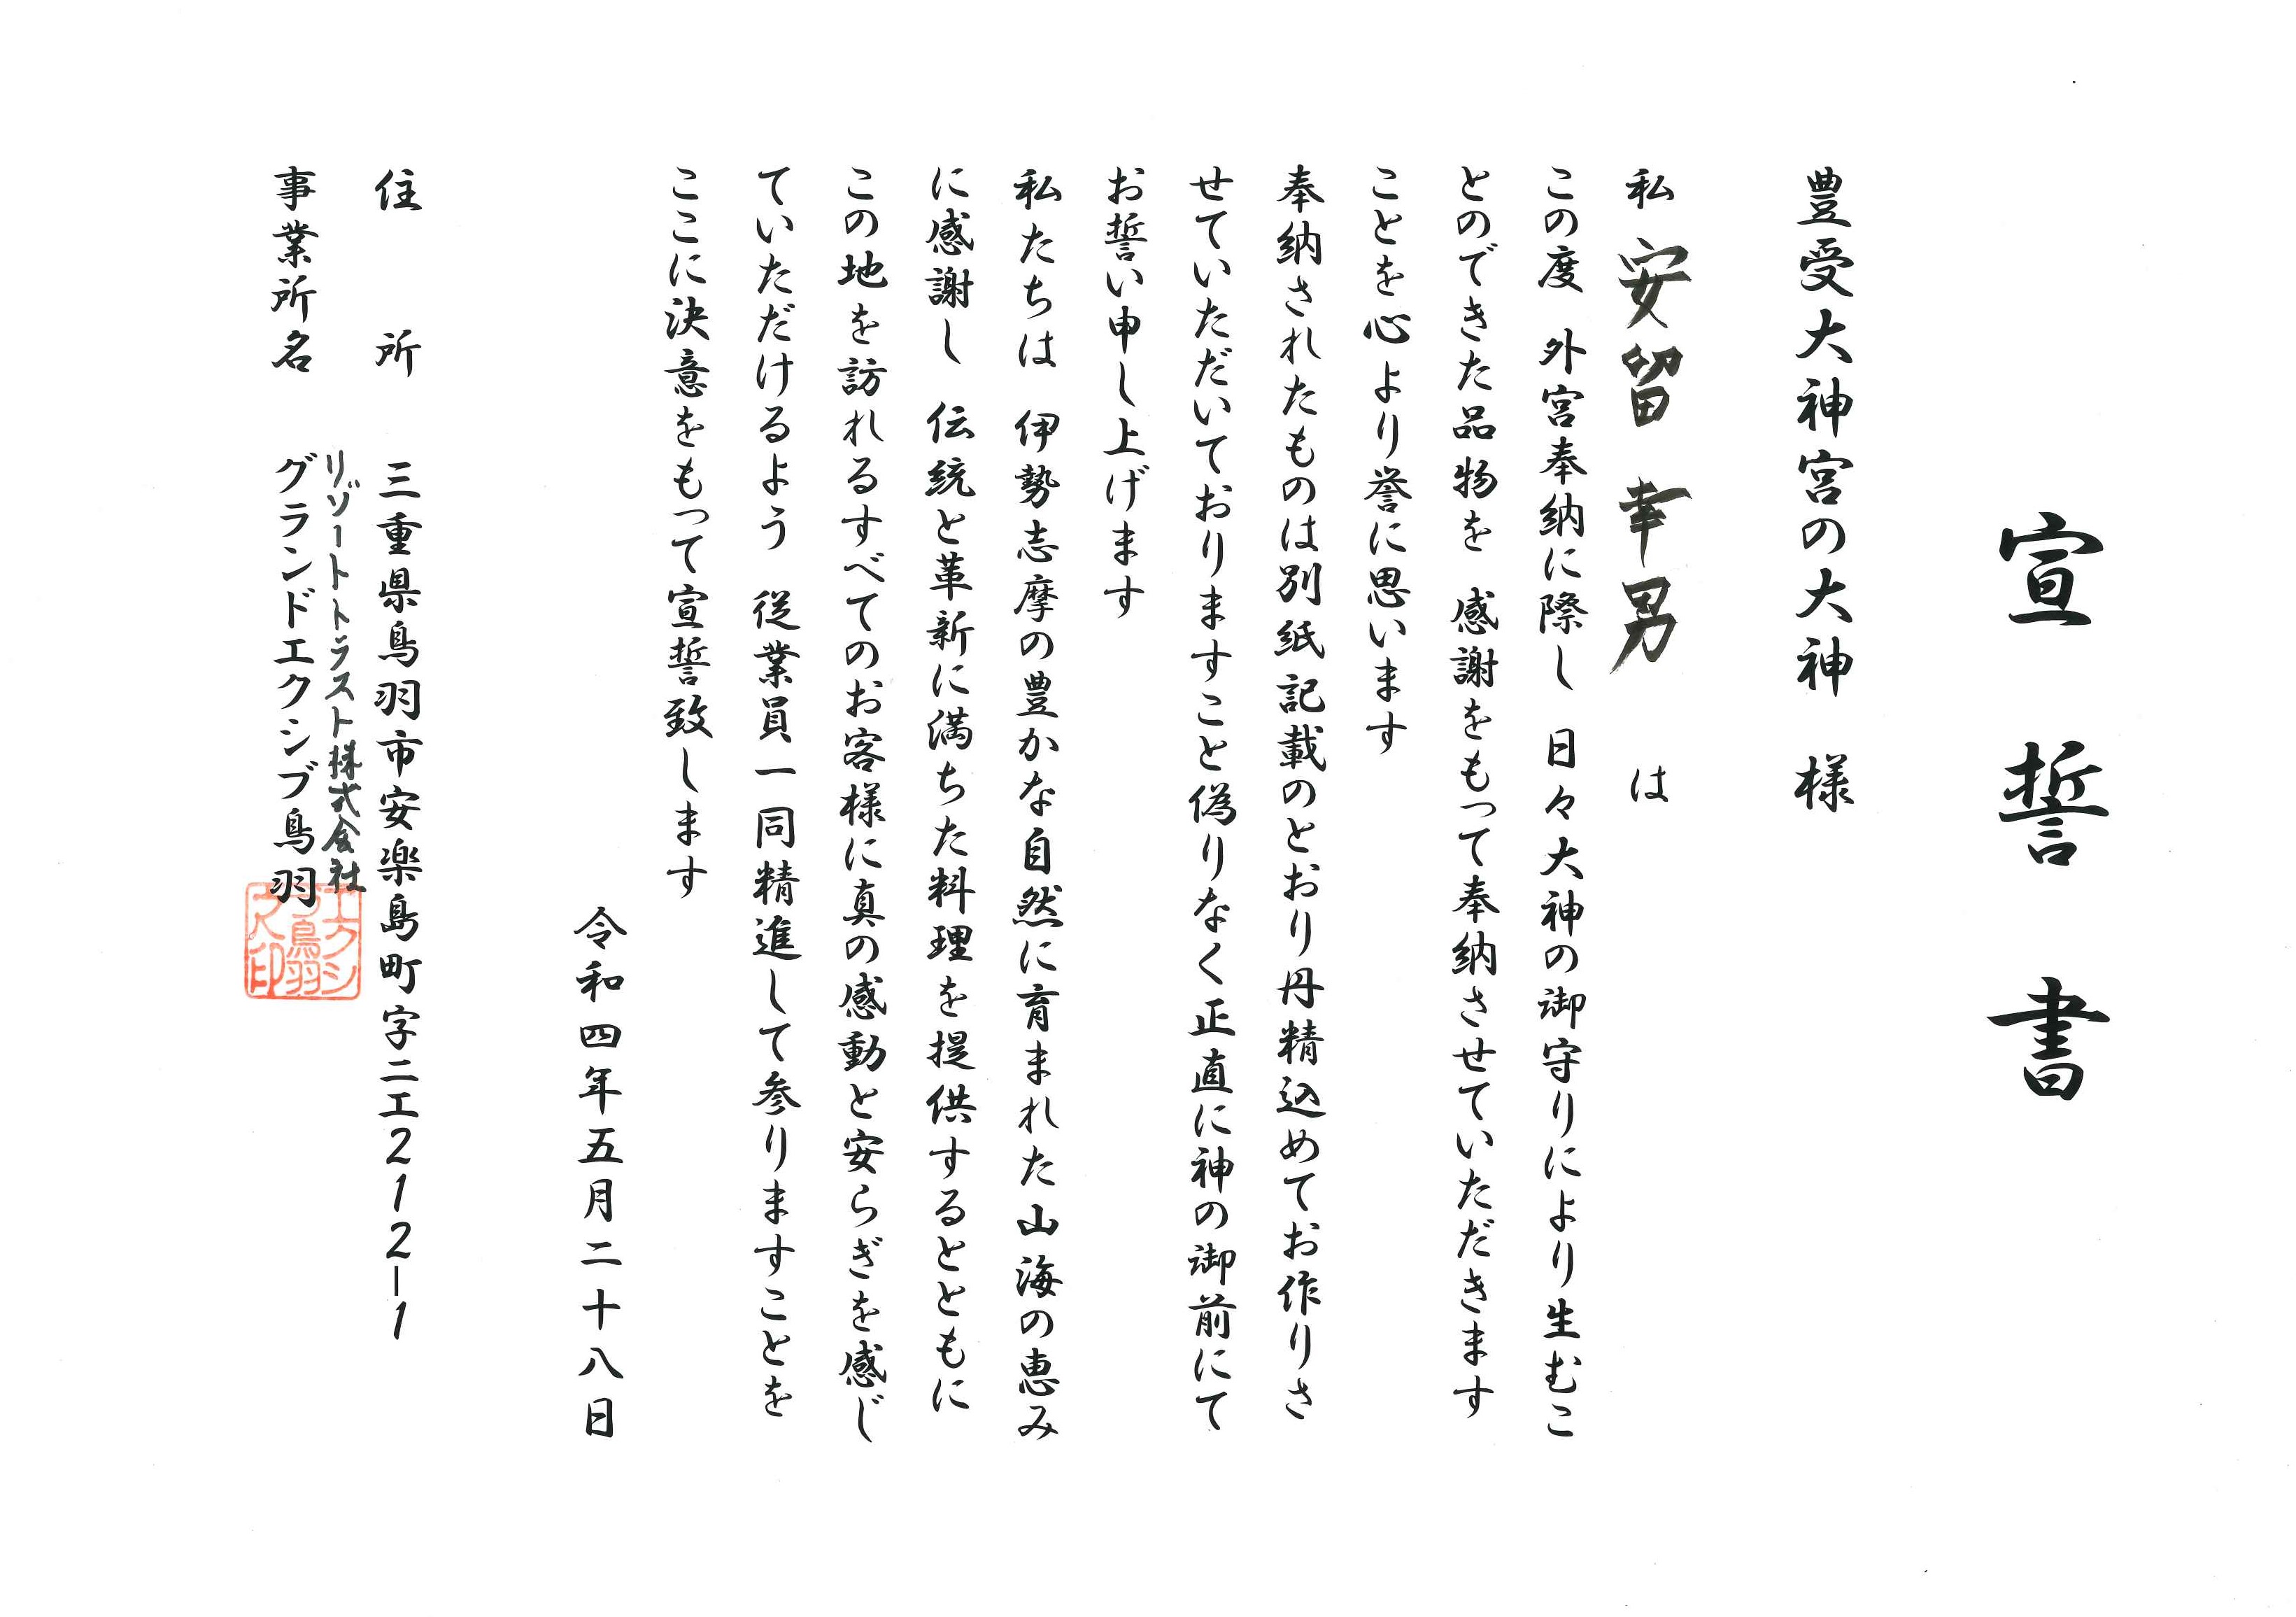 宣誓書
豊受大神宮の大神　様
私　安留　幸男　は
この度　外宮奉納に際し　日々大神の御守りにより生むこ
とのできた品物を　感謝をもって奉納させていただきます
ことを心より誉に思います
奉納されたものは別紙記載のとおり丹精込めてお作りさ
せていただいておりますこと偽りなく正直に神の御前にて
お誓い申し上げます
私たちは　伊勢志摩の豊かな自然に育まれた山海の恵み
に感謝し　伝統と革新に満ちた料理を提供するとともに
この地を訪れるすべてのお客様に真の感動と安らぎを感じ
ていただけるよう　従業員一同精進して参りますことを
ここに決意をもって宣誓致します
令和四年五月二十八日
住所　三重県鳥羽市安楽島町字ニエ2121-1
リゾートトラスト株式会社
事業所名　グランドエクシブ鳥羽
エクシ
ブ鳥羽
之印